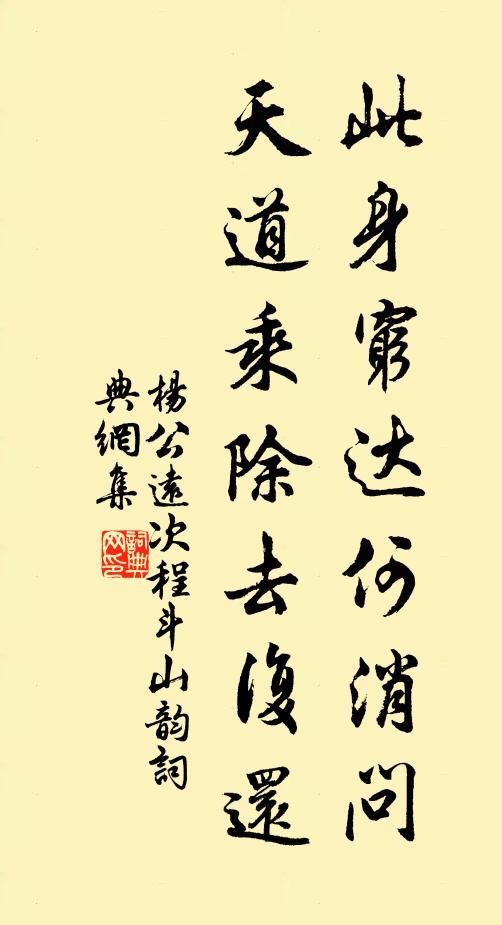 此身窮达何消問
天道乘除去復還
楊公遠次程斗山韵詞
典網集
詞典
网印